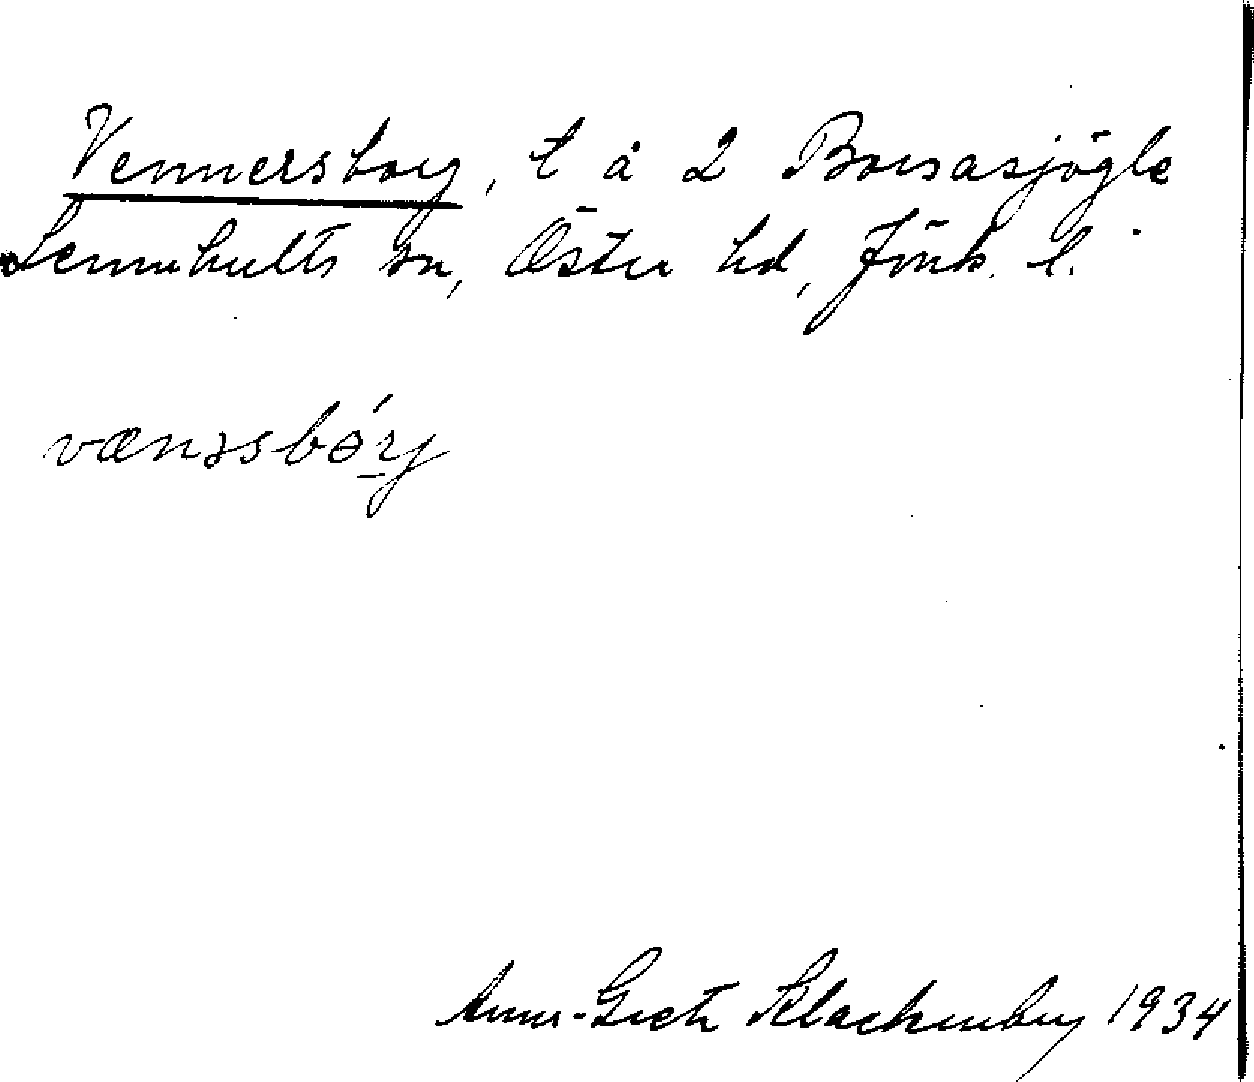 Vennersborg, t å 2 Borsasjögle
Lemnhults sn, Östra hd, Jönk. l.
vænəsbórj
Anna-Greta Klackenberg 1934